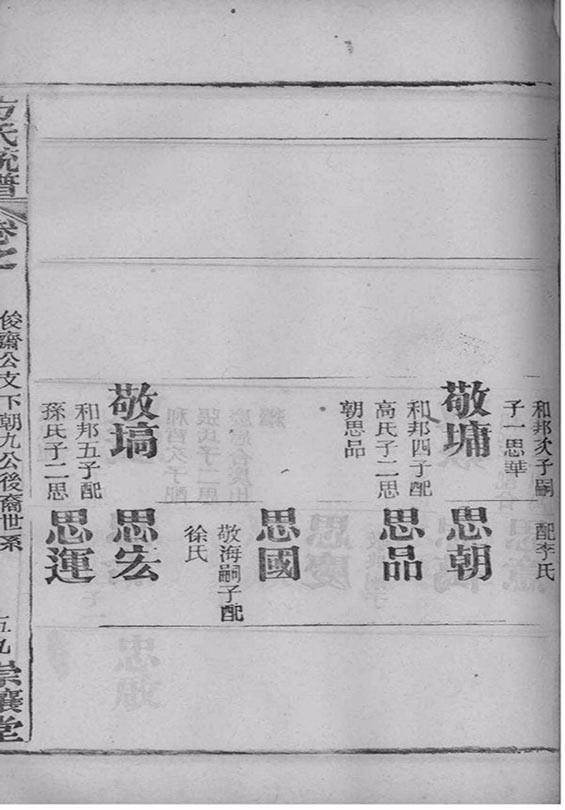 和邦次子嗣
子一思華
敬墉
和邦四子配
高氏子二思
朝思品
敬塙
和邦五子配
孫氏子二思
配李氏
思朝
思品
思國
敬海嗣子配
徐氏
思宏
思運
方氏統譜
卷之
俊齋公文下朝九公後裔世系
五九
崇讓堂